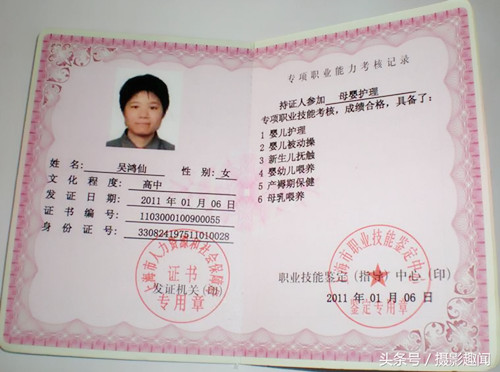 姓 名: 吴鸿仙 性 别: 女
文 化 程 度: 高中
发 证 日 期: 2011 年 01 月 06 日
证 书 编 号: 1103000100900055
身 份 证 号: 330824197511010028
上海市人力资源和社会保障局
证书
发证机关(印)
专用章
专项职业能力考核记录
持证人参加 母婴护理
专项职业技能考核,成绩合格,具备了:
1 婴儿护理
2 婴儿被动操
3 新生儿抚触
4 婴幼儿喂养
5 产褥期保健
6 母乳喂养
上海市职业技能鉴定中心
职业技能鉴定(指导)中心(印)
2011 年 01 月 06 日
鉴定专用章
头条号/摄影趣闻